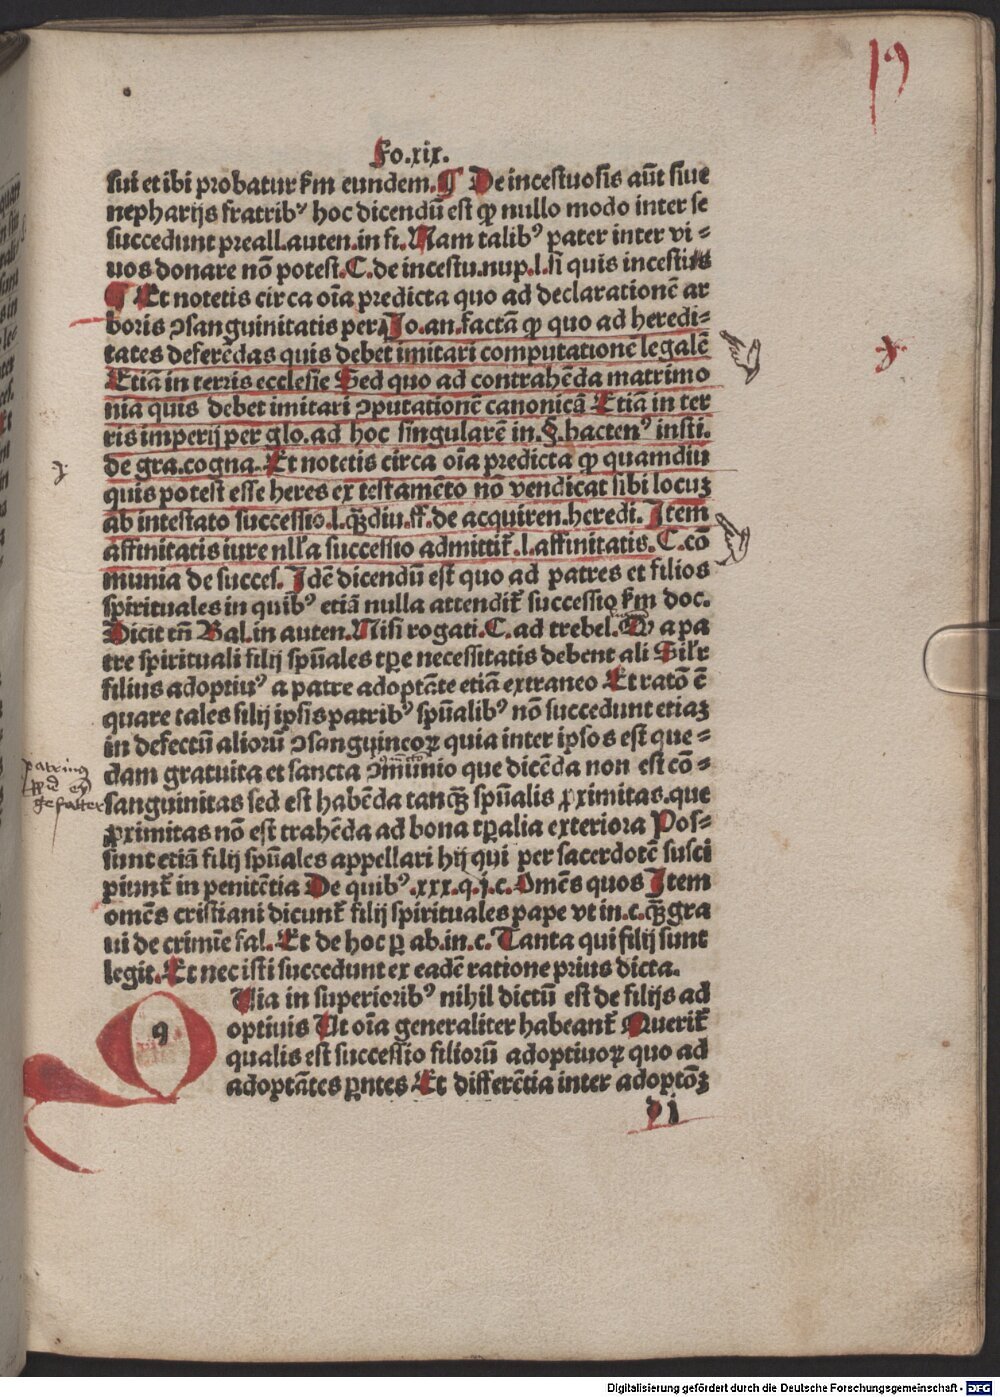 19
Fo.xix.
sui et ibi probatur ẜm eundem. ¶ De incestuosis aūt siue
nepharijs fratribꝰ hoc dicendū est ꝙ nullo modo inter se
succedunt preall.auten.in fi. Nam talibꝰ pater inter vi⸗
uos donare nō potest. C. de incestu.nup.l.si quis incestius
¶ Et notetis circa oīa predicta quo ad declarationē ar
boris ↄsanguinitatis per Jo.an.factā ꝙ quo ad heredi⸗
tates deferēdas quis debet imitari computationē legalē
Etiā in terris ecclesie Sed quo ad contrahēda matrimo
nia quis debet imitari ↄputationē canonicā Etiā in ter
ris imperij per glo.ad hoc singularē in.§.hactenꝰ insti.
de gra.cogna. Et notetis circa oīa predicta ꝙ quamdiu
quis potest esse heres ex testamēto nō vendicat sibi locuꝫ
ab intestato successio.l.qꝫdiu.ff.de acquiren.heredi. Item
affinitatis iure nll'a successio admittit᷑.l.affinitatis. C.cō
munia de succes. Idē dicendū est quo ad patres et filios
spirituales in quibꝰ etiā nulla attendit᷑ successio ẜm doc.
Dicit tñ Bal.in auten. Nisi rogati. C. ad trebel. ꝙ a pa
tre spirituali filij spūales tꝑe necessitatis debent ali Sil'r
filius adoptiuꝰ a patre adoptāte etiā extraneo Et ratō ē
quare tales filij ipsis patribꝰ spūalibꝰ nō succedunt etiaꝫ
in defectū aliorū ↄsanguineoꝝ quia inter ipsos est que⸗
dam gratuita et sancta ↄmūnio que dicēda non est cō⸗
sanguinitas sed est habēda tanqꝫ spūalis ꝓximitas.que
ꝓximitas nō est trahēda ad bona tꝑalia exteriora Pos⸗
sunt etiā filij spūales appellari hij qui per sacerdotē susci
piunt᷑ in penitētia De quibꝰ.xxx.q.j.c. Omēs quos Item
omēs cristiani dicunt᷑ filij spirituales pape vt in.c.qꝫ gra
ui de crimīe fal. Et de hoc ꝑ ab.in.c. Tanta qui filij sunt
legit. Et nec isti succedunt ex eadē ratione prius dicta.
q Uia in superioribꝰ nihil dictū est de filijs ad
optiuis Ut oīa generaliter habeant᷑ Querit᷑
qualis est successio filiorū adoptiuoꝝ quo ad
adoptātes ꝑntes Et differētia inter adoptōꝫ
d i
Digitalisierung gefördert durch die Deutsche Forschungsgemeinschaft - DFG